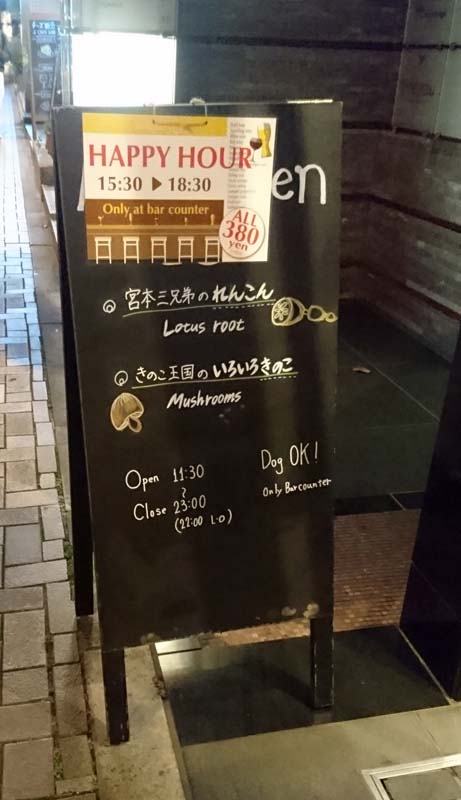 HAPPY HOUR
15:30 ▶ 18:30
Only at bar counter
ALL
380
yen
en
宮本三兄弟のれんこん
Lotus root
きのこ王国のいろいろきのこ
Mushrooms
Open 11:30
~
Close 23:00
(22:00 L.O)
Dog OK!
Only Bar counter